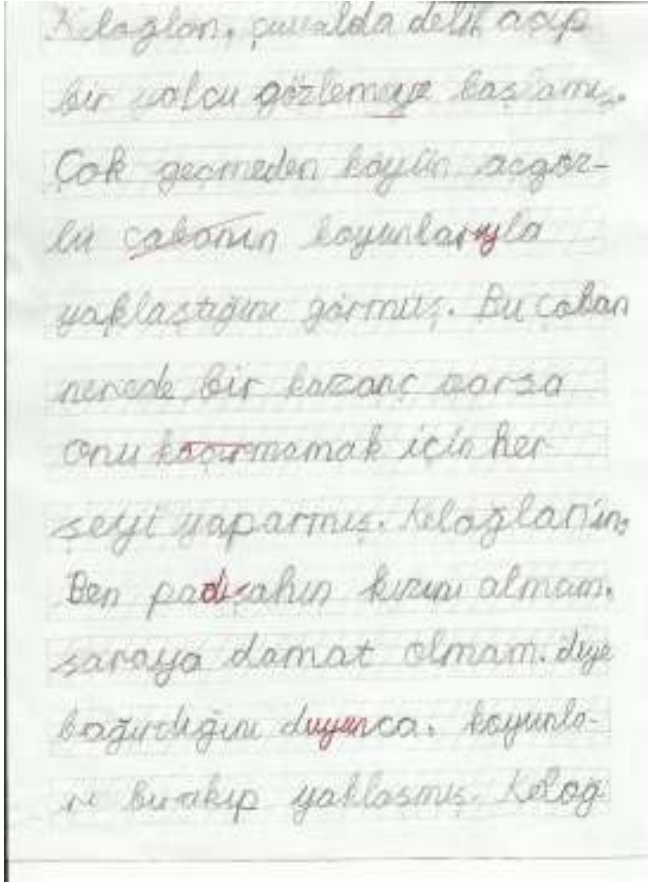 Keloğlan, çuvalda delik açıp
bir yolcu gözlemeye başlamış.
Çok geçmeden köyün açgöz-
lü çobanın koyunlarıyla
yaklaştığını görmüş. Bu çoban
nerede bir kazanç varsa
onu kaçırmamak için her
şeyi yaparmış. Keloğlan'ın,
Ben padişahın kızını almam,
saraya damat olmam. diye
bağırdığını duyunca, koyunla-
rı bırakıp yaklaşmış. Keloğ